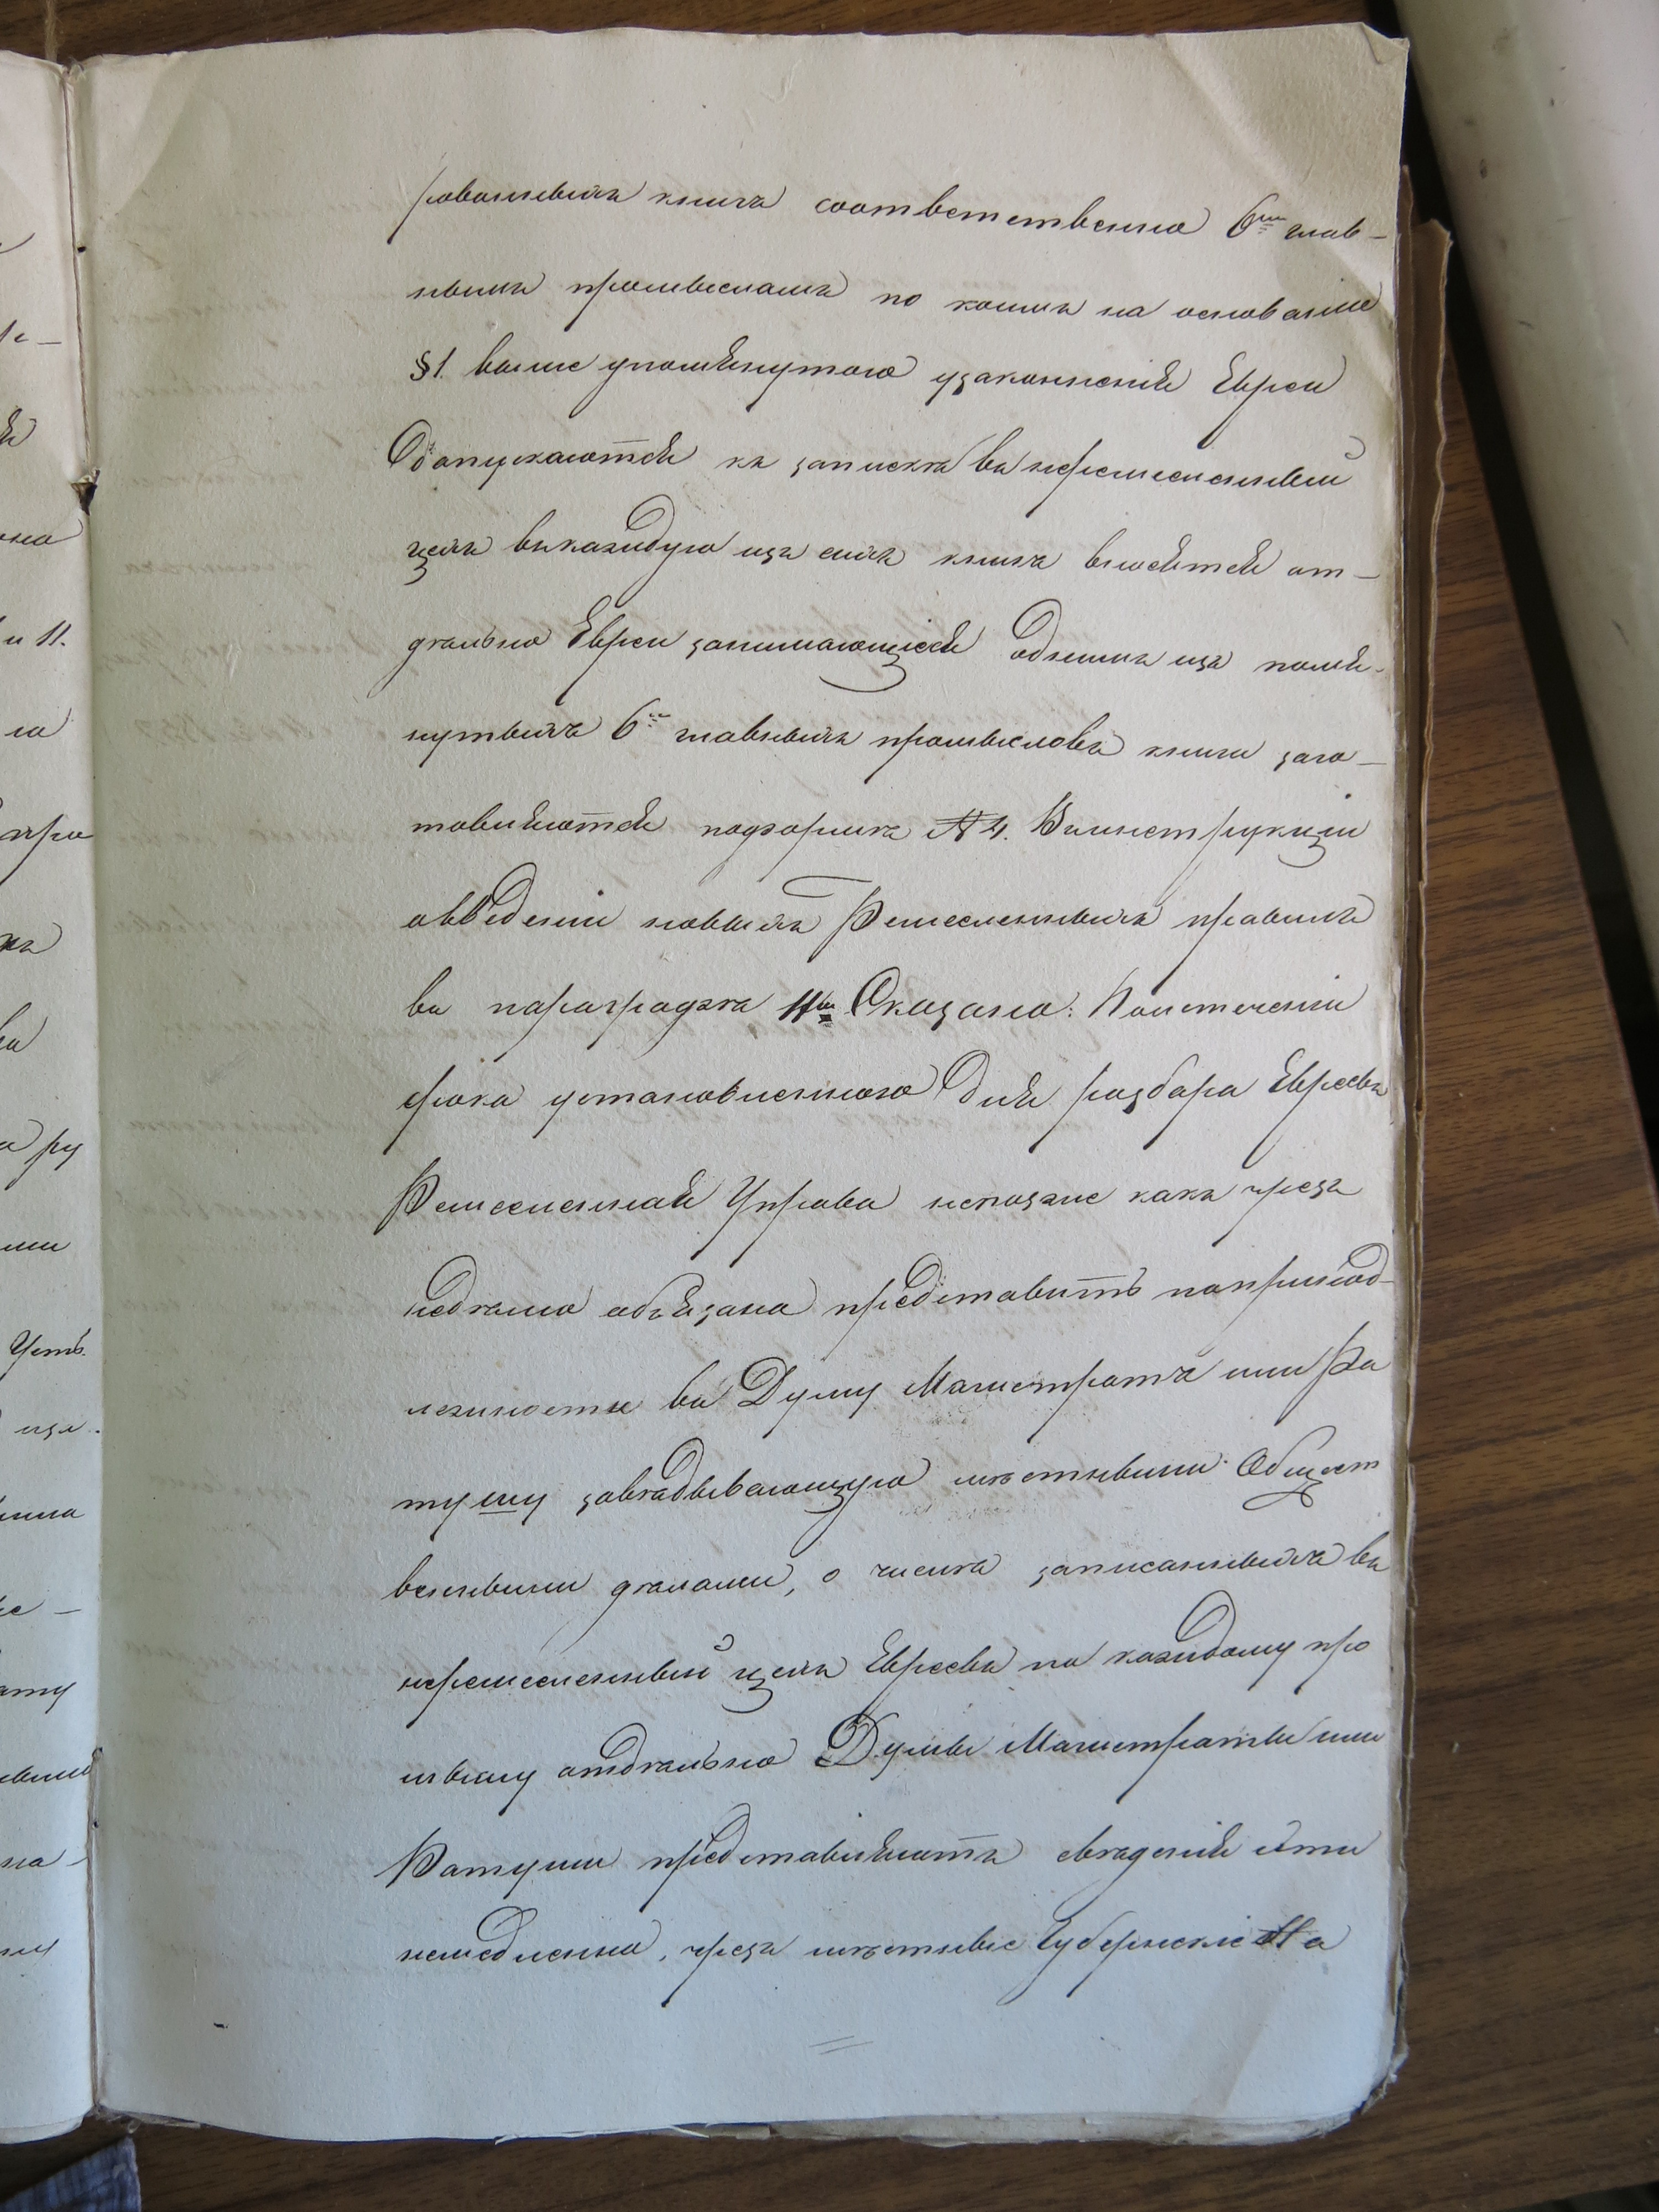 рованныхъ книгъ соответственно 6ти глав-
нымъ промысламъ по коимъ на основаніи
§1. выше упомянутаго узаконенія Евреи
Допускаются къ запискѣ въ неремесленный
цехъ въкаждую изъ сихъ книгъ вносятся от-
дѣльно Евреи занимающіеся однимъ изъ помя-
нутыхъ 6ти главныхъ промысловъ книги заго-
товляются подѣформѣ № 4. Въинструкціи
овведеніи новыхъ Ремесленныхъ правилъ
въ параграфѣ 11мъ Сказано: Поистеченіи
срока установленнаго для разбора Евреевъ
Ремесленная Управа непозже какъ чрезъ
недѣлю обязана представить попринад-
лежности въ Думу Магистратъ или Ра
тушу завѣдывающую мѣстными Общест
венными дѣлами, о числѣ записанныхъ въ
неремесленный цехъ Евреевъ по каждому про
мыслу отдѣльно Думы Магистраты или
Ратуши представляютъ свѣденія эти
немедленно, чрезъ мѣстные Губернскіе На